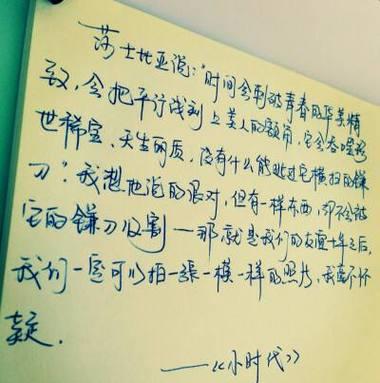 莎士比亚说：“时间会刺破青春的华美精
致，会把平行线刻上美人的额角，它会吞噬稀
世稀宝、天生丽质，没有什么能逃过它横扫的镰
刀”。我想他说的很对，但有一样东西，却不会被
它的镰刀收割——那就是我们的友谊十年之后，
我们一定可以拍一张一模一样的照片，我毫不怀
疑．
——《小时代》